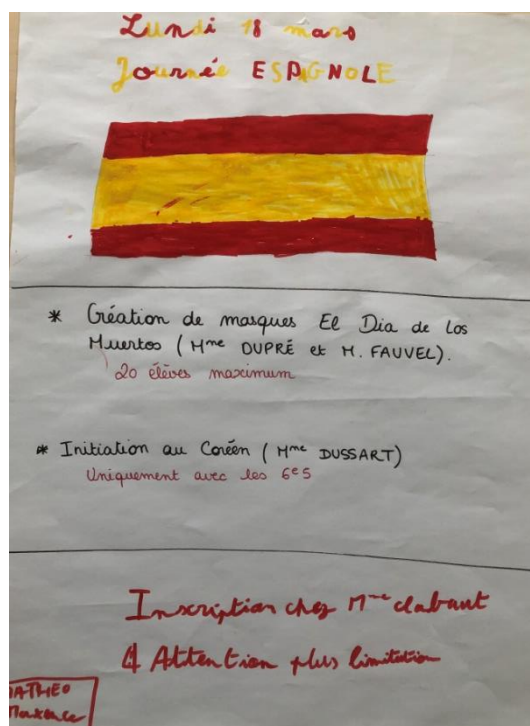 Lundi 18 mars
Journée ESPAGNOLE
* Création de masques El Dia de Los
Muertos (Mme DUPRÉ et M. FAUVEL).
20 élèves maximum
* Initiation au Coréen (Mme DUSSART)
Uniquement avec les 6e5
Inscription chez Mme clabaut
Attention plus limitution
MATHEO
Maxence